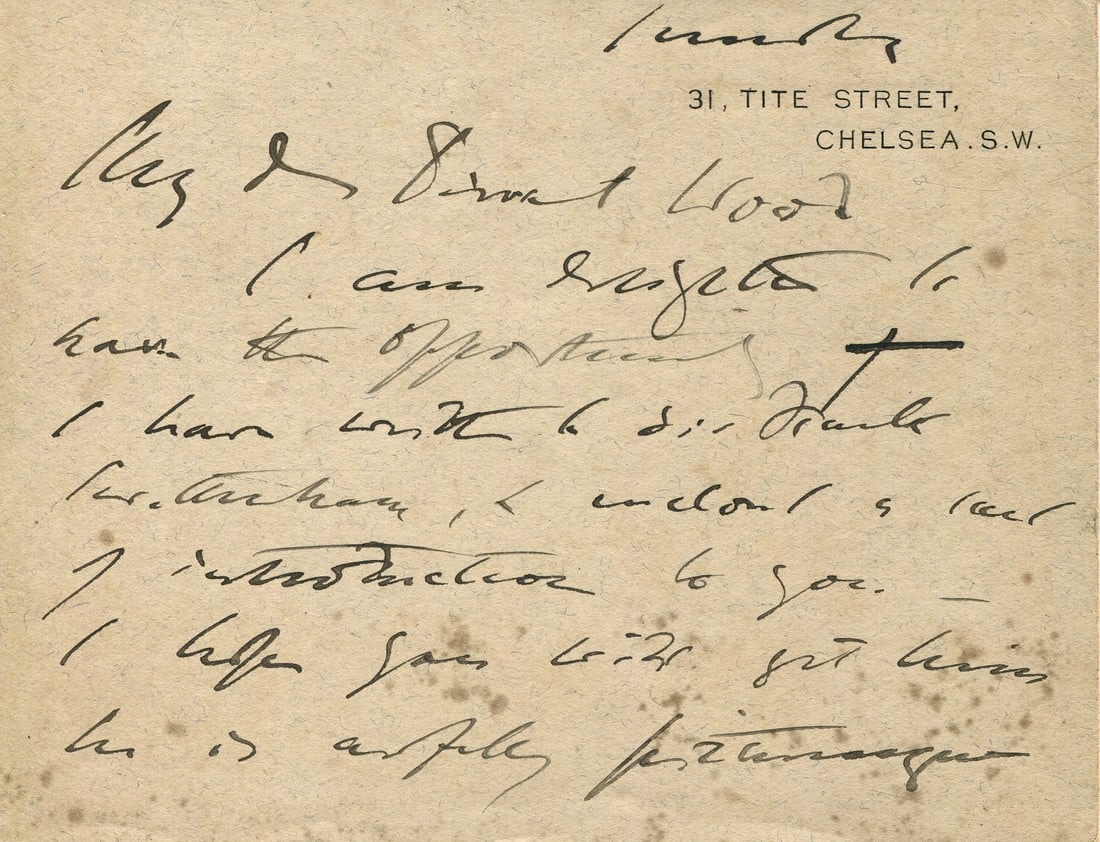 Sunday
31, TITE STREET,
CHELSEA. S.W.
My dr Derwent Wood
I am delighted to
have the opportunity
I have written to Sir Frank
Swettenham, & enclose a card
of introduction to you. —
I hope you will get him
he is awfully picturesque